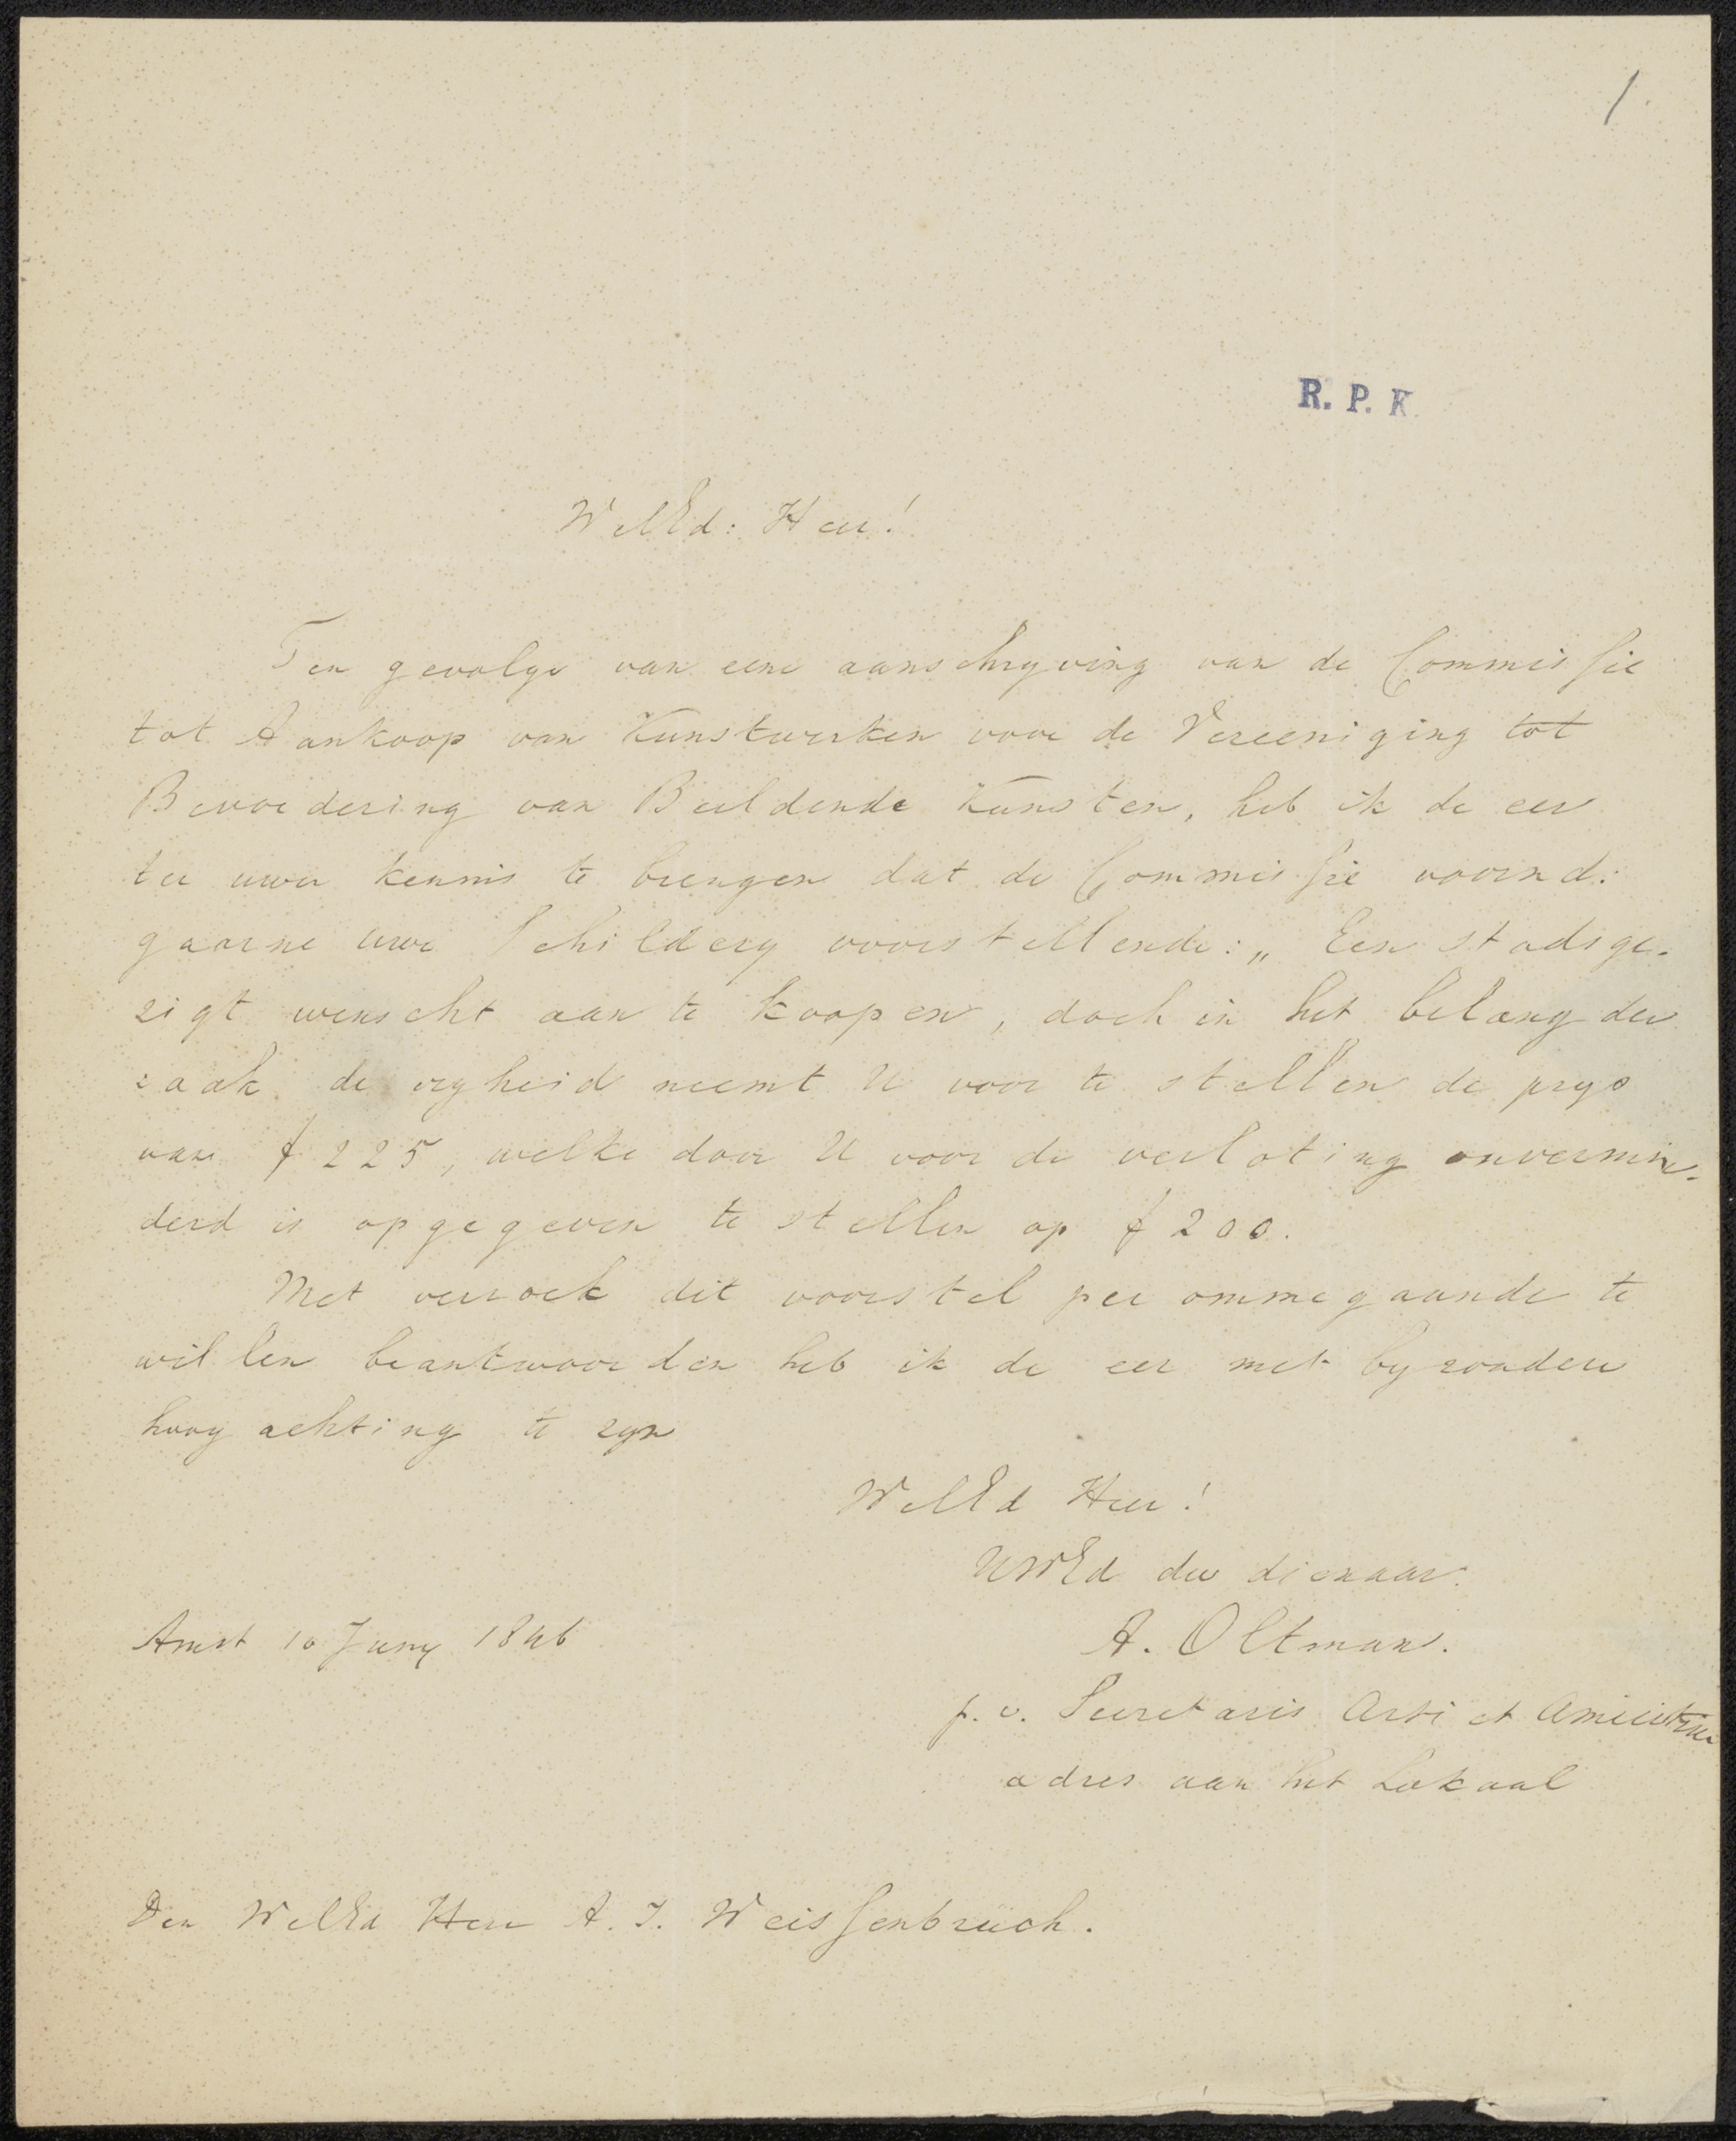 1.
R. P. K.
WelEd: Heer!
Ten gevolge van eene aanschryving van de Commissie
tot Aankoop van Kunstwerken voor de Vereeniging tot
Bevordering van Beeldende Kunsten, heb ik de eer
ter uwer kennis te brengen dat de Commissie voornd:
gaarne uwe Schildery voorstellende: „ Een stadsge-
zigt wenscht aan te koopen, doch in het belang der
zaak de vryheid neemt U voor te stellen de prys
van f 225, welke door U voor de verloting onvermin-
derd is opgegeven te stellen op f 200.
Met verzoek dit voorstel per ommegaande te
willen beantwoorden heb ik de eer met byzondere
hoogachting te zyn
WelEd Heer!
UWEd dw dienaar.
A. Oltman.
p. v. Secretaris Arti et Amicitiae
adres aan het Lokaal
Amst 10 Juny 1846
Den WelEd Heer A. J. Weissenbruch.